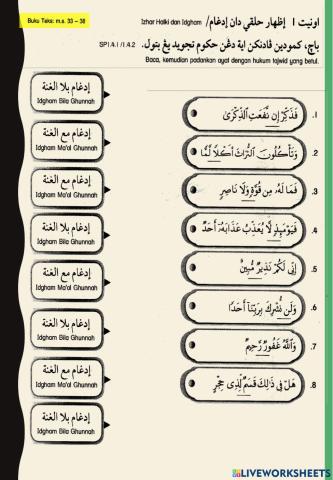 Buku Teks: m.s. 33 – 38
اونيت ١ إظهار حلقي دان إدغام/ Izhar Halki dan Idgham
باچ، کمودين ڤادنکن اية دڠن حکوم تجويد يڠ بتول.
SP1.4.1 /1.4.2
Baca, kemudian padankan ayat dengan hukum tajwid yang betul.
إدغام بلا الغنة
Idgham Bila Ghunnah
إدغام مع الغنة
Idgham Ma'al Ghunnah
إدغام مع الغنة
Idgham Ma'al Ghunnah
إدغام بلا الغنة
Idgham Bila Ghunnah
إدغام مع الغنة
Idgham Ma'al Ghunnah
إدغام بلا الغنة
Idgham Bila Ghunnah
إدغام مع الغنة
Idgham Ma'al Ghunnah
إدغام بلا الغنة
Idgham Bila Ghunnah
.1 فَذَكِّرْ إِن نَّفَعَتِ الذِّكْرَىٰ
.2 وَتَأْكُلُونَ التُّرَاثَ أَكْلًا لَّمًّا
.3 فَمَا لَهُ مِن قُوَّةٍ وَلَا نَاصِرٍ
.4 فَيَوْمَئِذٍ لَّا يُعَذِّبُ عَذَابَهُ أَحَدٌ
.5 إِنِّي لَكُمْ نَذِيرٌ مُّبِينٌ
.6 وَلَن نُّشْرِكَ بِرَبِّنَا أَحَدًا
.7 وَاللَّهُ غَفُورٌ رَّحِيمٌ
.8 هَلْ فِي ذَٰلِكَ قَسَمٌ لِّذِي حِجْرٍ
LIVEWORKSHEETS